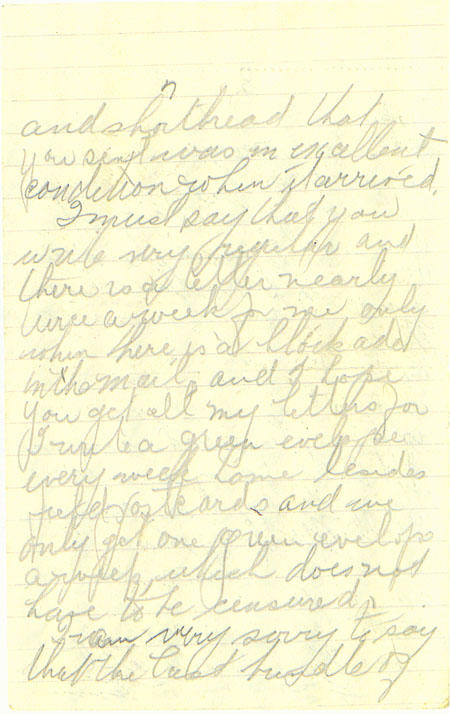 and shortbread that
you sent was in excellent
condition when it arrived.
I must say that you
write very regular and
there is a letter nearly
twice a week for me only
when there is a blockade
in the mail, and I hope
you get all my letters for
I write a green evelope
every week home besides
field post cards and we
only get one green evelope
a week, which does not
have to be censured,
I am very sorry to say
that the last bundle of